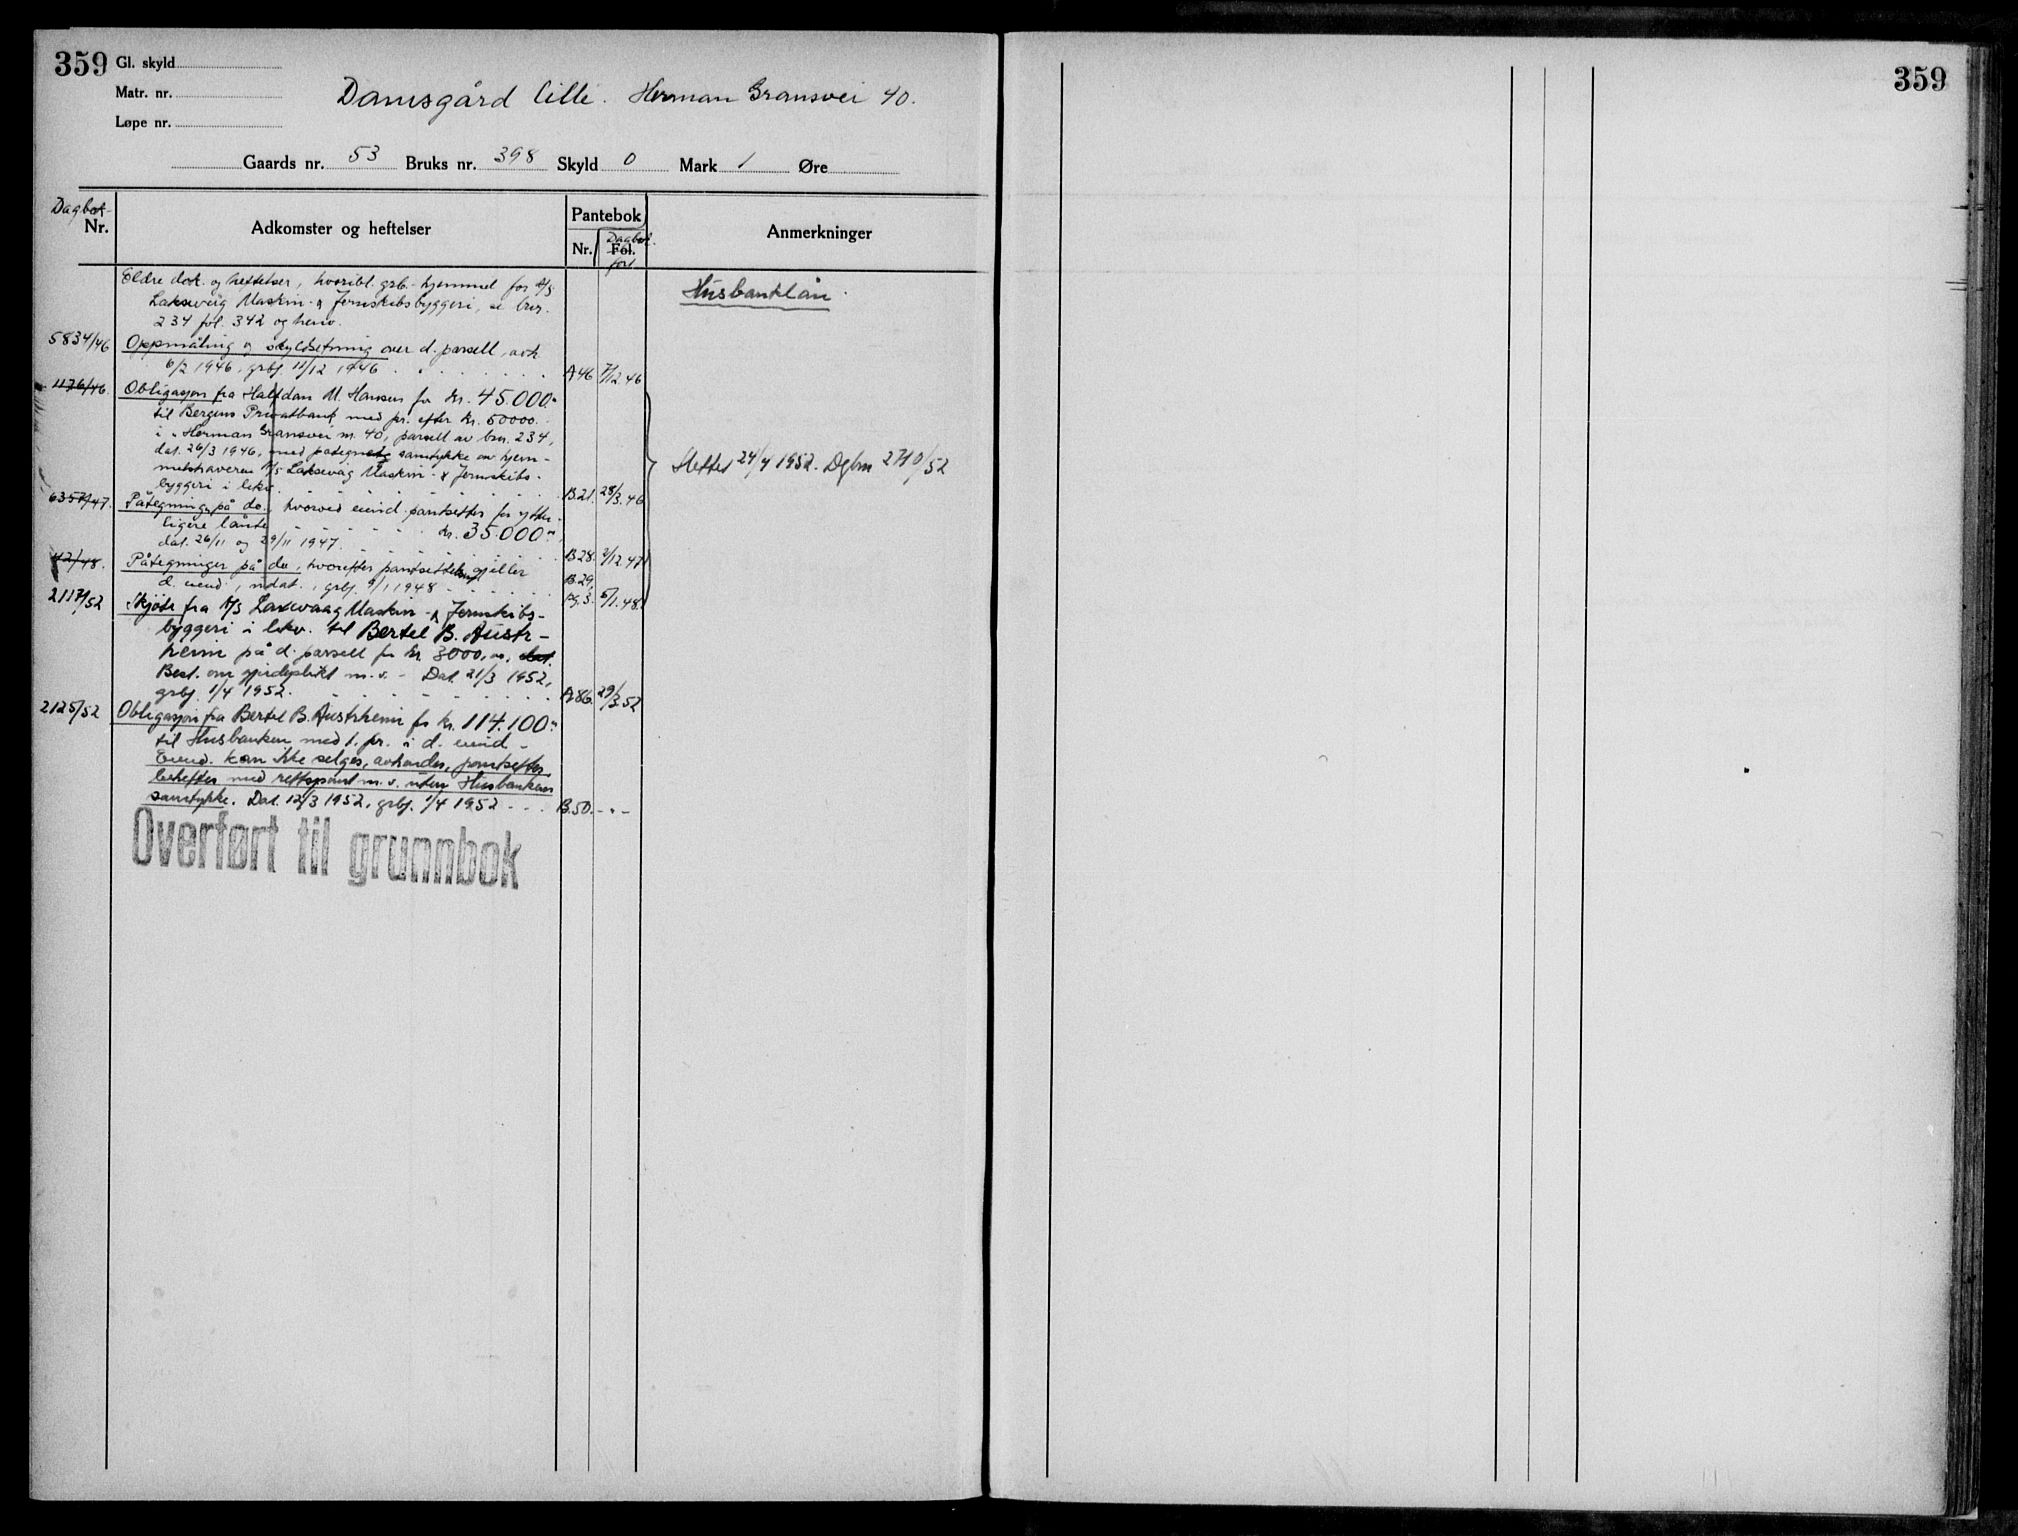 359 Gl. skyld
Matr. nr.
Løpe nr.
Damsgård lille. Herman Gransvei 40.
Gaards nr. 53 Bruks nr. 398 Skyld 0 Mark 1 Øre
Dagbok Nr.
Adkomster og heftelser
Pantebok
Nr. Fol. Dagbok ført
Anmerkninger
Eldre dok. og heftelser, hvoribl. grb.-hjemmel for A/S
Laksevåg Maskin- & Jernskibsbyggeri, se bnr.
234 fol. 342 og henv.
Husbanklån.
5834/46 Oppmåling og skyldsetning over d. parsell, avh.
6/2 1946, grbf. 11/12 1946 A46 7/12.46
1176/46. Obligasjon fra Halfdan M. Hansen for kr. 45.000.-
til Bergens Privatbank med pr. efter kr. 50000.-
i "Herman Gransvei nr. 40, parsell av bnr. 234,
dat. 26/3 1946, med påtegnet samtykke av hjem-
melshaveren A/S Laksevåg Maskin- & Jernskibs-
byggeri i likv. B.21. 28/3.46
Slettet 24/4 1952. Dgbnr 2710/52
6357/47. Påtegning på do., hvorved eiend. pantsettes for ytter-
ligere lånte kr. 35.000.-,
dat. 26/11 og 29/11 1947. B28. 2/12.47
42/48. Påtegninger på do, hvorefter pantsettelsen gjeller
d. eiend., udat., grbf. 9/1 1948 B29, pg. 3. 5/1.48.
2117/52 Skjøte fra A/S Laxevaag Maskin- & Jernskibs-
byggeri i likv. til Bertel B. Austr-
heim på d. parsell for kr. 3000,00, dat.
Best. om gjerdeplikt m. v. - Dat. 21/3 1952,
grbf. 1/4 1952. A86. 29/3.52
2125/52 Obligasjon fra Bertel B. Austrheim for kr. 114.100.-
til Husbanken med 1. pr. i d. eiend -
Eiend. kan ikke selges, avhendes, pantsettes,
beheftes med rettspant m. v. uten Husbankens
samtykke. Dat. 12/3 1952, grbf. 1/4 1952 - - - B.50. - " -
Overført til grunnbok
359